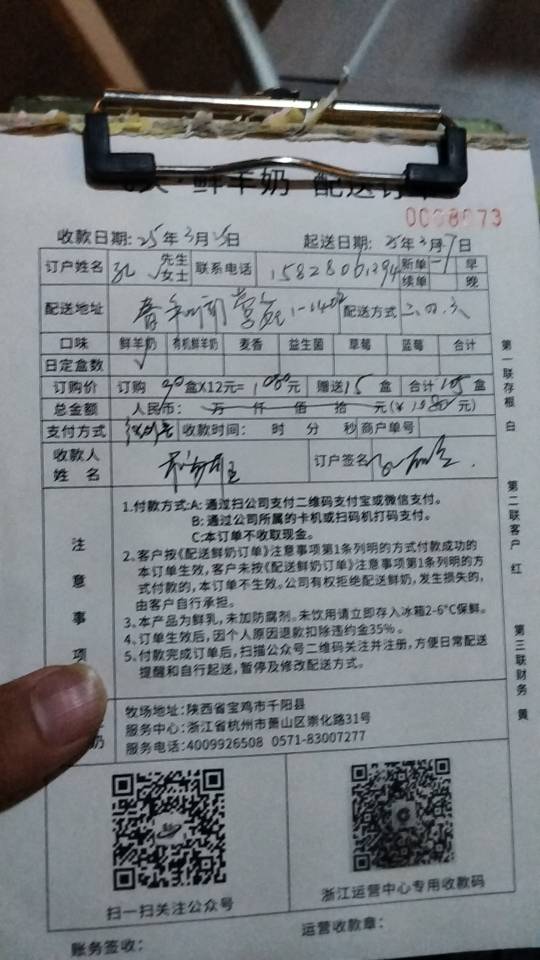 鲜羊奶 配送订单
0008673
收款日期: 25年3月5日 起送日期: 25年3月7日
订户姓名 孔 先生 女士 联系电话 新单 早
续单 晚
配送地址 配送方式 二.四.六
口味 鲜羊奶 有机鲜羊奶 麦香 益生菌 草莓 蓝莓 合计
日定盒数 ✓
订购价 订购 90 盒X12元= 1080元 赠送 15 盒 合计 105 盒
总金额 人民币: 万 仟 佰 拾 元(¥ 1080 元)
支付方式 收款时间: 时 分 秒 商户单号
收款人
姓 名
订户签名
注意事项
1.付款方式:A: 通过扫公司支付二维码支付宝或微信支付。
B: 通过公司所属的卡机或扫码机打码支付。
C:本订单不收取现金。
2、客户按《配送鲜奶订单》注意事项第1条列明的方式付款成功的
本订单生效,客户未按《配送鲜奶订单》注意事项第1条列明的方
式付款的,本订单不生效。公司有权拒绝配送鲜奶,发生损失的,
由客户自行承担。
3、本产品为鲜乳,未加防腐剂。未饮用请立即存入冰箱2-6°C保鲜。
4、订单生效后,因个人原因退款扣除违约金35%。
5、付款完成订单后,扫描公众号二维码关注并注册,方便日常配送
提醒和自行起送,暂停及修改配送方式。
奶
牧场地址:陕西省宝鸡市千阳县
服务中心:浙江省杭州市萧山区崇化路31号
服务电话:4009926508 0571-83007277
扫一扫关注公众号
浙江运营中心专用收款码
账务签收:
运营收款章:
第一联存根 白
第二联客户 红
第三联财务 黄